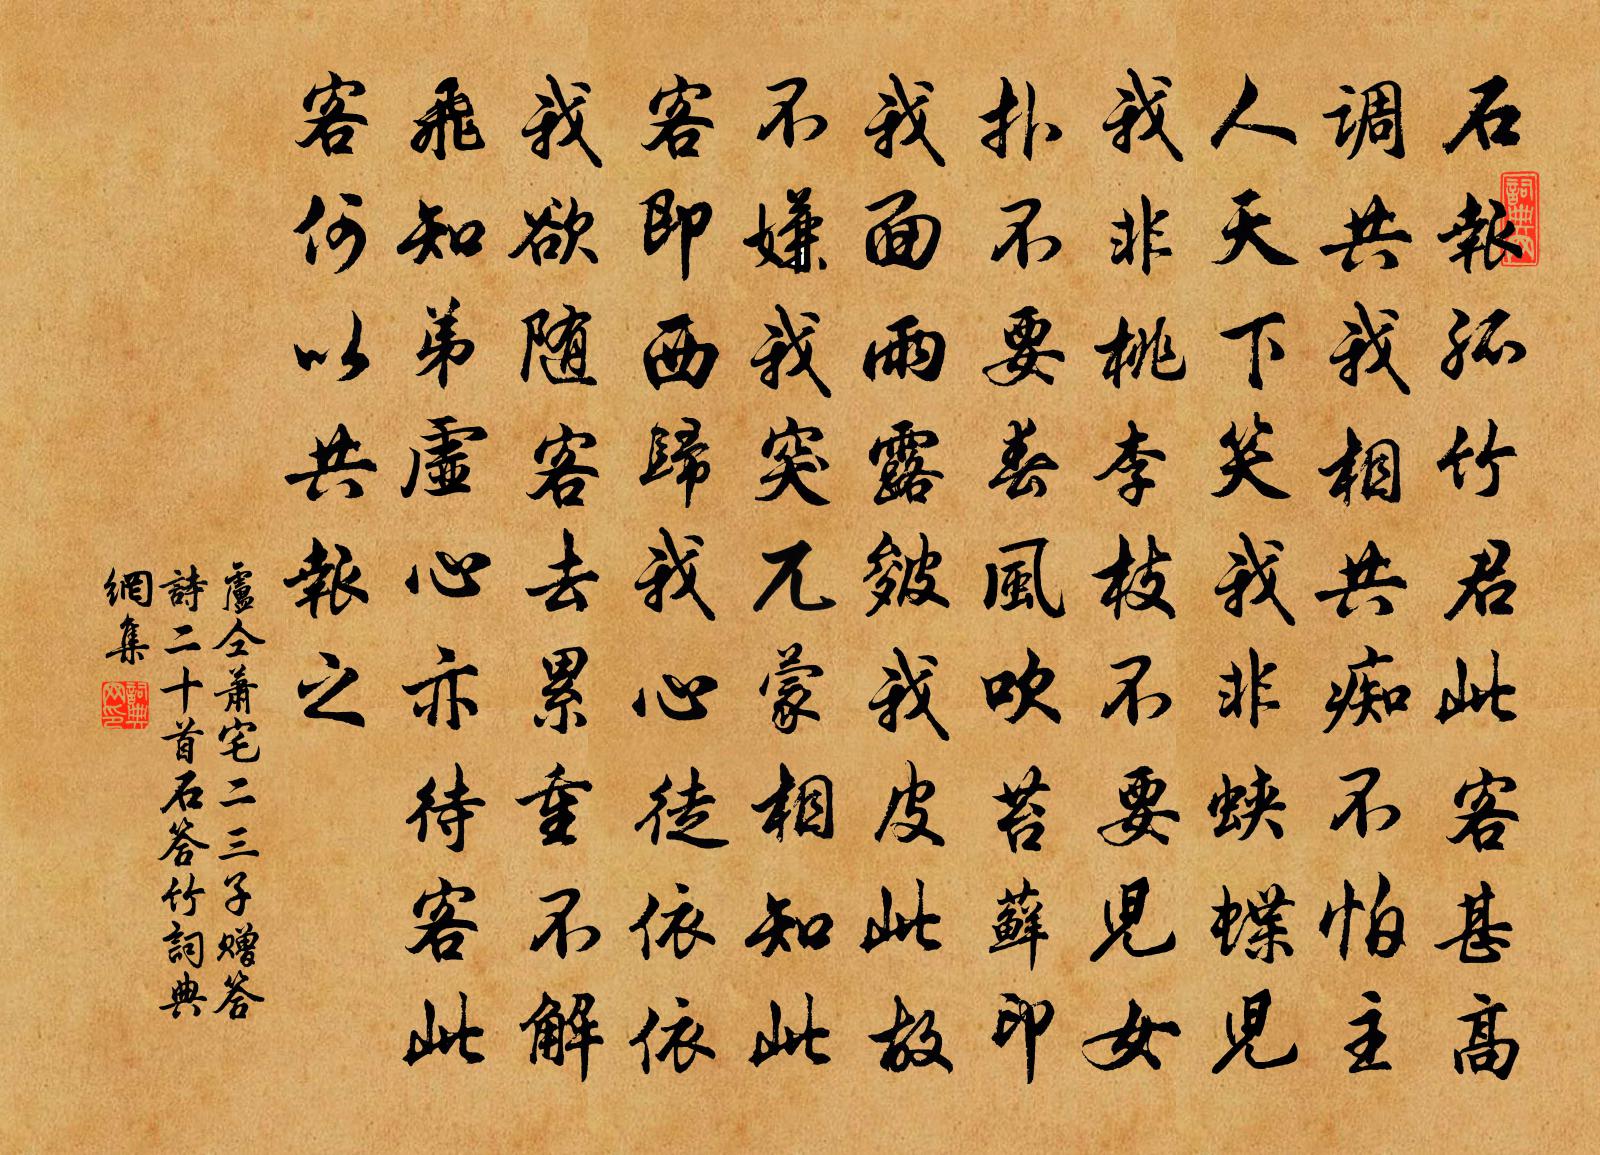 石報孤竹君此客甚高
调共我相共痴不怕主
人天下笑我非蛱蝶児
我非桃李枝不要児女
扑不要春風吹苔蘚印
我面雨露皴我皮此故
不嫌我突兀蒙相知此
客即西歸我心徒依依
我欲随客去累重不解
飛知弟虛心亦待客此
客何以共報之
盧仝蕭宅二三子赠答
詩二十首石答竹詞典
網集
詞典网
詞典网印